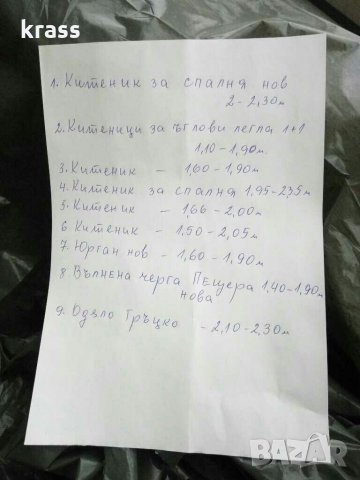 krass
1. Китеник за спалня нов
2 - 2,30м
2. Китеници за ъглови легла 1+1
1,10 - 1,90м.
3. Китеник - 160 - 1,90м
4. Китеник за спалня 1,95-235м
5. Китеник - 1,66 - 2,00м
6 Китеник - 1,50 - 2,05м
7. Юрган нов - 1,60 - 1,90м
8 Вълнена черга Пещера 1,40-1,90м
нова
9. Одяло Гръцко - 2,10 - 2,30м
BAZAR